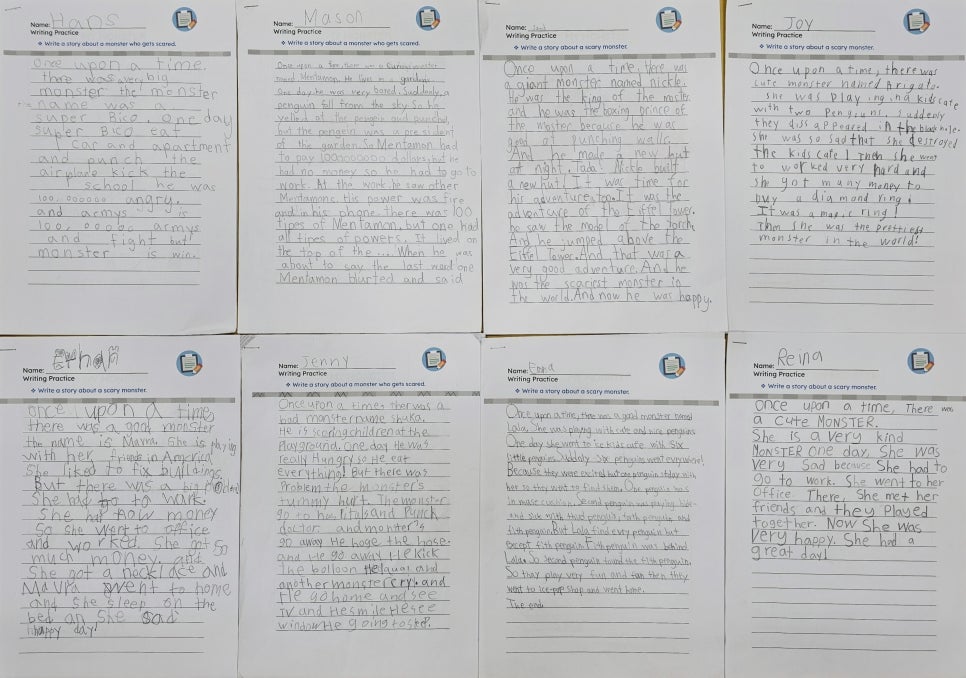 Name: Hans
Writing Practice
❖ Write a story about a monster who gets scared.
Once upon a time,
there was very big
monster the monster
name was a
super Bico. One day
super Bico eat
car and apartment
and punch the
airplane kick the
school he was
100.000000 angry.
and armys is
100.000000 armys
and fight but
monster is win.
Name: Mason
Writing Practice
❖ Write a story about a monster who gets scared.
Once upon a time, there was a
named Mentamon. He lives in a garden.
One day, he was very bored. Suddenly, a
penguin fell from the sky. So he
yelled at the penguin and punched,
but the penguin was a president
of the garden. So Mentamon had
to pay 100000000 dollars, but he
had no money so he had to go to
work. At the work, he saw other
Mentamons. His power was fire
and in his phone, there was 100
tipes of Mentamon, but one had
all tipes of powers. It lived on
the top of the ... When he was
about to say the last word one
Mentamon blurted and said
Name:
Writing Practice
❖ Write a story about a scary monster.
Once upon a time, there was
a giant monster named Nickle.
He was the king of the
and he was the boxing prince of
the moster because he was
good at punching walls.
And he made a new hut
at night. Tada! Nickle built
a new hut! It was time for
his adventure, too. It was the
adventure of the Eiffel Tower.
he saw the model of the torch.
And he jumped above the
Eiffel Tower. And that was a
very good adventure. And he
was the scariest monster in
the world. And now he was happy.
Name: Joy
Writing Practice
❖ Write a story about a scary monster.
Once upon a time, there was
cute monster named Brigato.
She was playing in a kids cafe
with two penguins. Suddenly
they diss appeared in the black hole.
She was so sad that she destroyed
the kids cafe! Then she went
to worked very hard and
she got many money to
buy a diamond ring!
It was a magic ring!
Then she was the prettiest
monster in the world!
Name: Ethan
Writing Practice
❖ Write a story about a scary monster.
Once upon a time,
there was a goal monster
the name is Mavra. She is playing
with her friends in America.
She liked to fix buildings.
But there was a big
She had to to work.
She has now money
So she went to office
and worked. She got so
much money. and
She got a necklace and
Mavra went to home
and she sleep on the
bed an She sad
happy day!
Name: Jenny
Writing Practice
❖ Write a story about a monster who gets scared.
Once upon a time, ther was a
bad monster name shuko.
He is scaring children at the
Playground. One day He was
really Hungry so He eat
everything! But there was
Problem the monster's
tummy hurt. The monster
go to hospital and Punch
doctor and monter's
go away He the hose.
and He go away He kick
the balloon He and
another monster cry. and
He go home and see
TV and He smile He see
window He going to
Name: Emma
Writing Practice
❖ Write a story about a scary monster.
Once upon a time, there was a good monster named
Lala. She was playing with cute and nice penguins.
One day she went to ice kids cafe with six
little penguins. Suddenly six penguins went everywhere!
Because they were excited but one penguin stay with
her so they went to find them. One penguin was
in music Second penguin was playing
and with third penguin, forth penguin and
fifth penguin. But Lala find every penguin but
except fifth penguin. Fifth penguin was behind
Lala. So second penguin found the fifth penguin.
So they play very fun and then they
went to ice-pop shop and went home.
The end.
Name: Reina
Writing Practice
❖ Write a story about a scary monster.
Once upon a time, There was
a CUTE MONSTER.
She is a very kind
MONSTER one day, She was
very Sad because She had to
go to work. She went to her
Office. There, She met her
friends and they Played
together. Now She was
very happy. She had a
great day!